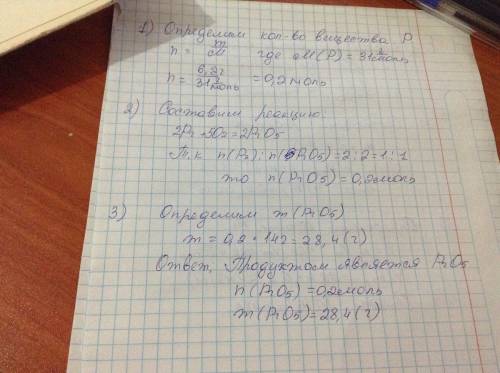 1) Определим кол-во вещества P
n = m/M где M(P) = 31 г/моль
n = 6,2г / 31 г/моль = 0,2 моль
2) Составим реакцию:
2P₂ + 5O₂ = 2P₂O₅
Т.к n(P₂) : n(P₂O₅) = 2 : 2 = 1 : 1
то n(P₂O₅) = 0,2 моль
3) Определим m(P₂O₅)
m = 0,2 * 142 = 28,4 (г)
Ответ, Продуктом является P₂O₅
n(P₂O₅) = 0,2 моль
m(P₂O₅) = 28,4 (г)